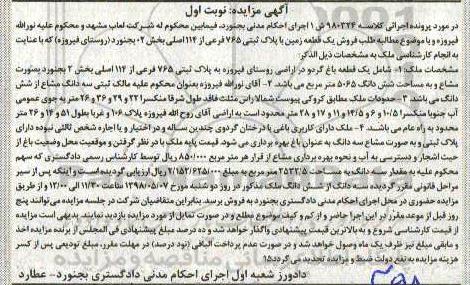 آگهی مزایده: نوبت اول
در مورد پرونده اجرائی کلاسه ۹۸۰۳۲۶ ش ۱ اجرای احکام مدنی بجنورد فیمابین محکوم له شرکت لعاب مشهد و محکوم علیه نورالله
فیروزه و با موضوع مطالبه طلب فروش یک قطعه زمین با پلاک ثبتی ۷۶۵ فرعی از ۱۱۴ اصلی بخش ۰۲ بجنورد (روستای فیروزه) که با عنایت
به انجام کارشناسی ملک به مشخصات ذیل الذکر:
مشخصات ملک: ۱- شامل یک قطعه باغ گردو در اراضی روستای فیروزه به پلاک ثبتی ۷۶۵ فرعی از ۱۱۴ اصلی بخش ۲ بجنورد بصورت
مشاع و به مساحت شش دانگ ۵۰۶۵ متر مربع می باشد. ۲- آقای نورالله فیروزه بعنوان محکوم علیه مالک ثبتی سه دانگ مشاع از شش
دانگ می باشد. ۳- حدودات ملک مطابق کروکی پیوست شمالا راس مثلث فاقد طول شرقا منکسرا ۲۲ و ۲۹ و ۳۶ و ۲۶ متر به جوی عمومی
آب جنوبا منکسرا ۱۰/۵ و ۶ و ۱۴/۵ و ۱۱ و ۱۷ و ۲۸ متر محدود است به اراضی آقای روح الله فیروزه پلاک ۱۰۶ و غربا بطول ۵۱ و ۱۴ و ۲۶ متر
محدود به راه عام می باشد. ۴- ملک دارای کاربری باغی با درختان گردوی چندین ساله و در اختیار و یا اجاره شخص ثالثی نبوده دارای
پلاک ثبتی و به صورت مشاع سه دانگ به عنوان باغ بهره برداری می شود. قیمت پایه ملک با در نظر گرفتن و موقعیت محل وضعیت باغ از
حیث اشجار و دسترسی به آب و نحوه بهره برداری مشاع از قرار هر متر مربع ۸۵۰/۰۰۰ ریال توسط کارشناس رسمی دادگستری که سهم
محکوم علیه به مقدار سه دانگ به مساحت ۲۵۳۲/۵ متر مربع به مبلغ ۲/۱۵۲/۶۲۵/۰۰۰ ریال ارزیابی گردیده است و اینکه پس از سیر
مراحل قانونی مقرر گردیده سه دانگ از شش دانگ ملک مذکور در روز دو شنبه مورخ ۱۳۹۸/۰۵/۰۷ ساعت ۱۱/۳۰ الی ۱۲/۰۰ از طریق
مزایده حضوری در محل اجرای احکام مدنی دادگستری بجنورد به فروش برسد. بنابراین متقاضیان شرکت در جلسه مزایده می توانند پنج
روز قبل از موعد مقرر در این اجرا حاضر و از کم و کیف موضوع مطلع و در صورت تمایل از مورد مزایده بازدید نمایند. بدیهی است مزایده
از قیمت کارشناسی شروع و به بالاترین قیمت پیشنهادی واگذار خواهد شد و ده درصد مبلغ پیشنهادی فی المجلس از برنده مزایده اخذ
و مابقی مبلغ نیز ظرف یک ماه وصول خواهد شد و در صورت عدم پرداخت الباقی (نود درصد) در مهلت مقرر، مبلغ تودیعی پس از کسر
هزینه مزایده به نفع دولت ضبط و مزایده تجدید می گردد.۱۵
دادورز شعبه اول اجرای احکام مدنی دادگستری بجنورد- عطارد